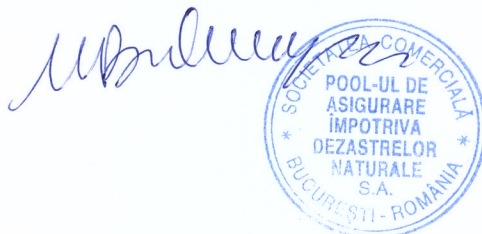 SOCIETATEA COMERCIALĂ
POOL-UL DE
ASIGURARE
ÎMPOTRIVA
DEZASTRELOR
NATURALE
S.A.
* BUCUREȘTI - ROMÂNIA *